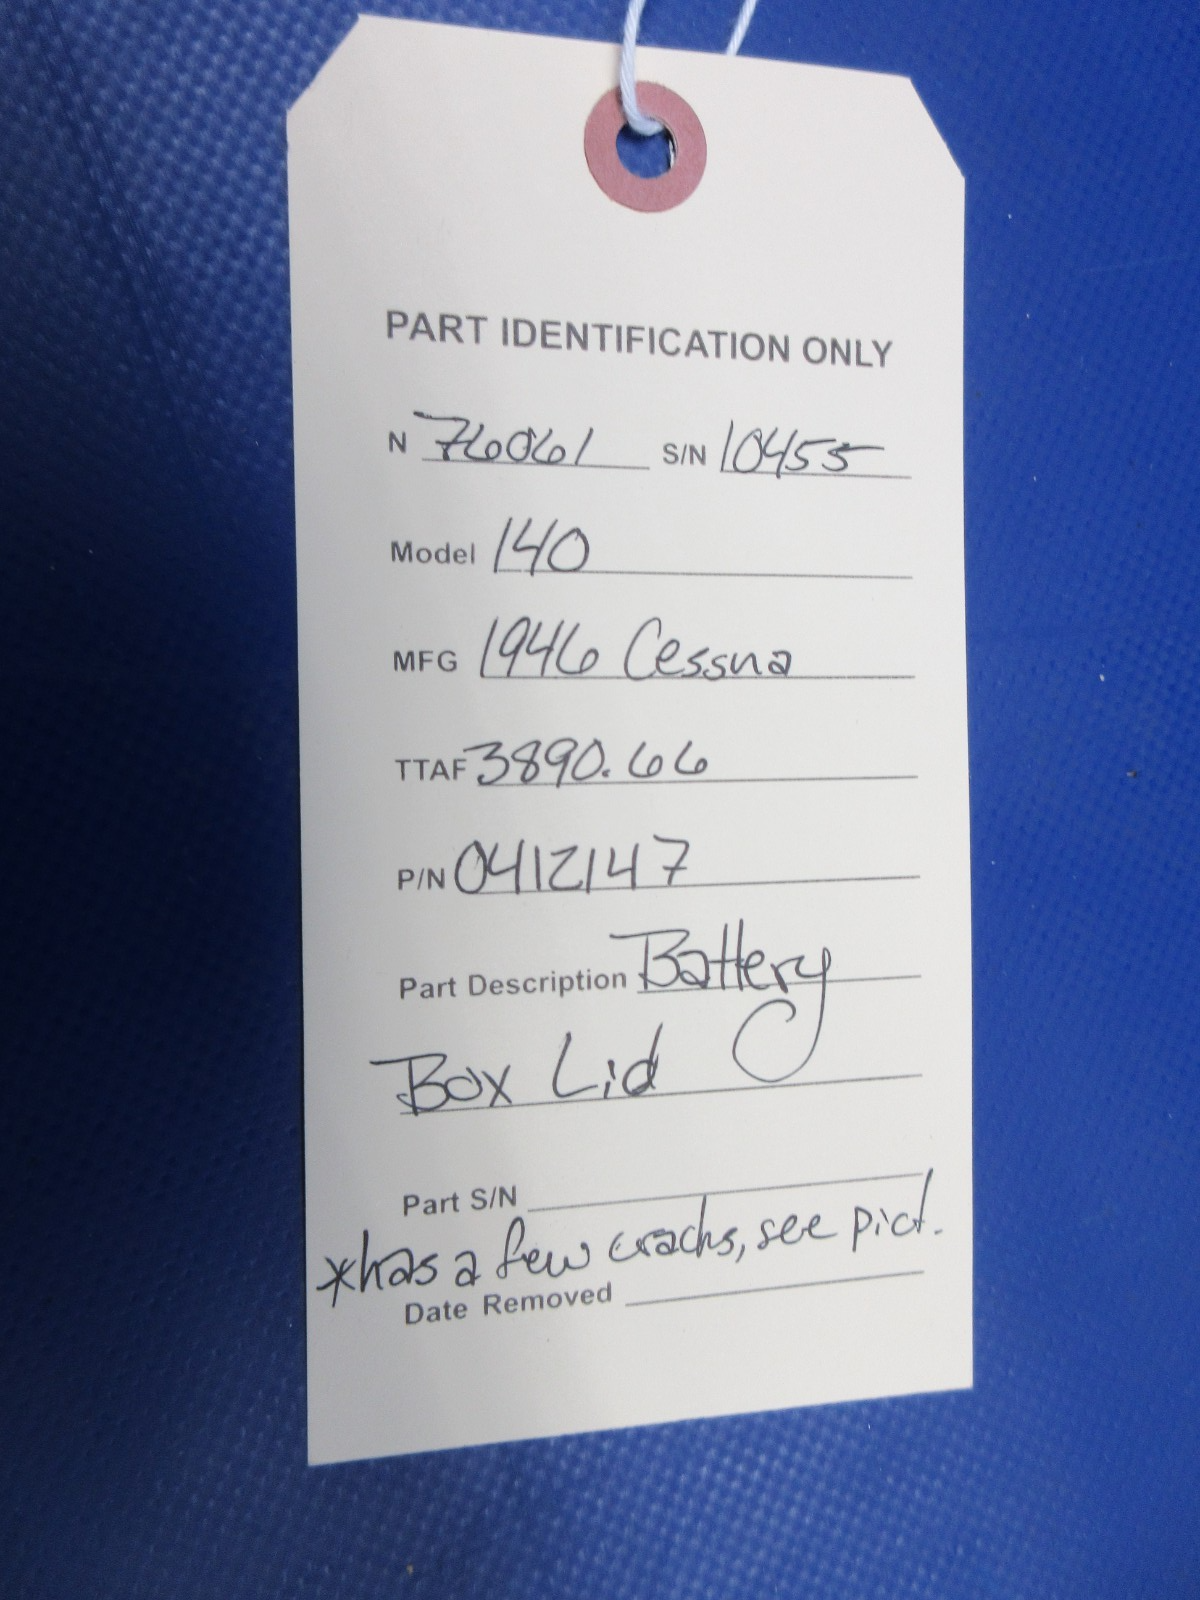 PART IDENTIFICATION ONLY
N 76061 S/N 10455
Model 140
MFG 1946 Cessna
TTAF 3890.66
P/N 0412147
Part Description Battery
Box Lid
Part S/N
*has a few cracks, see pict.
Date Removed